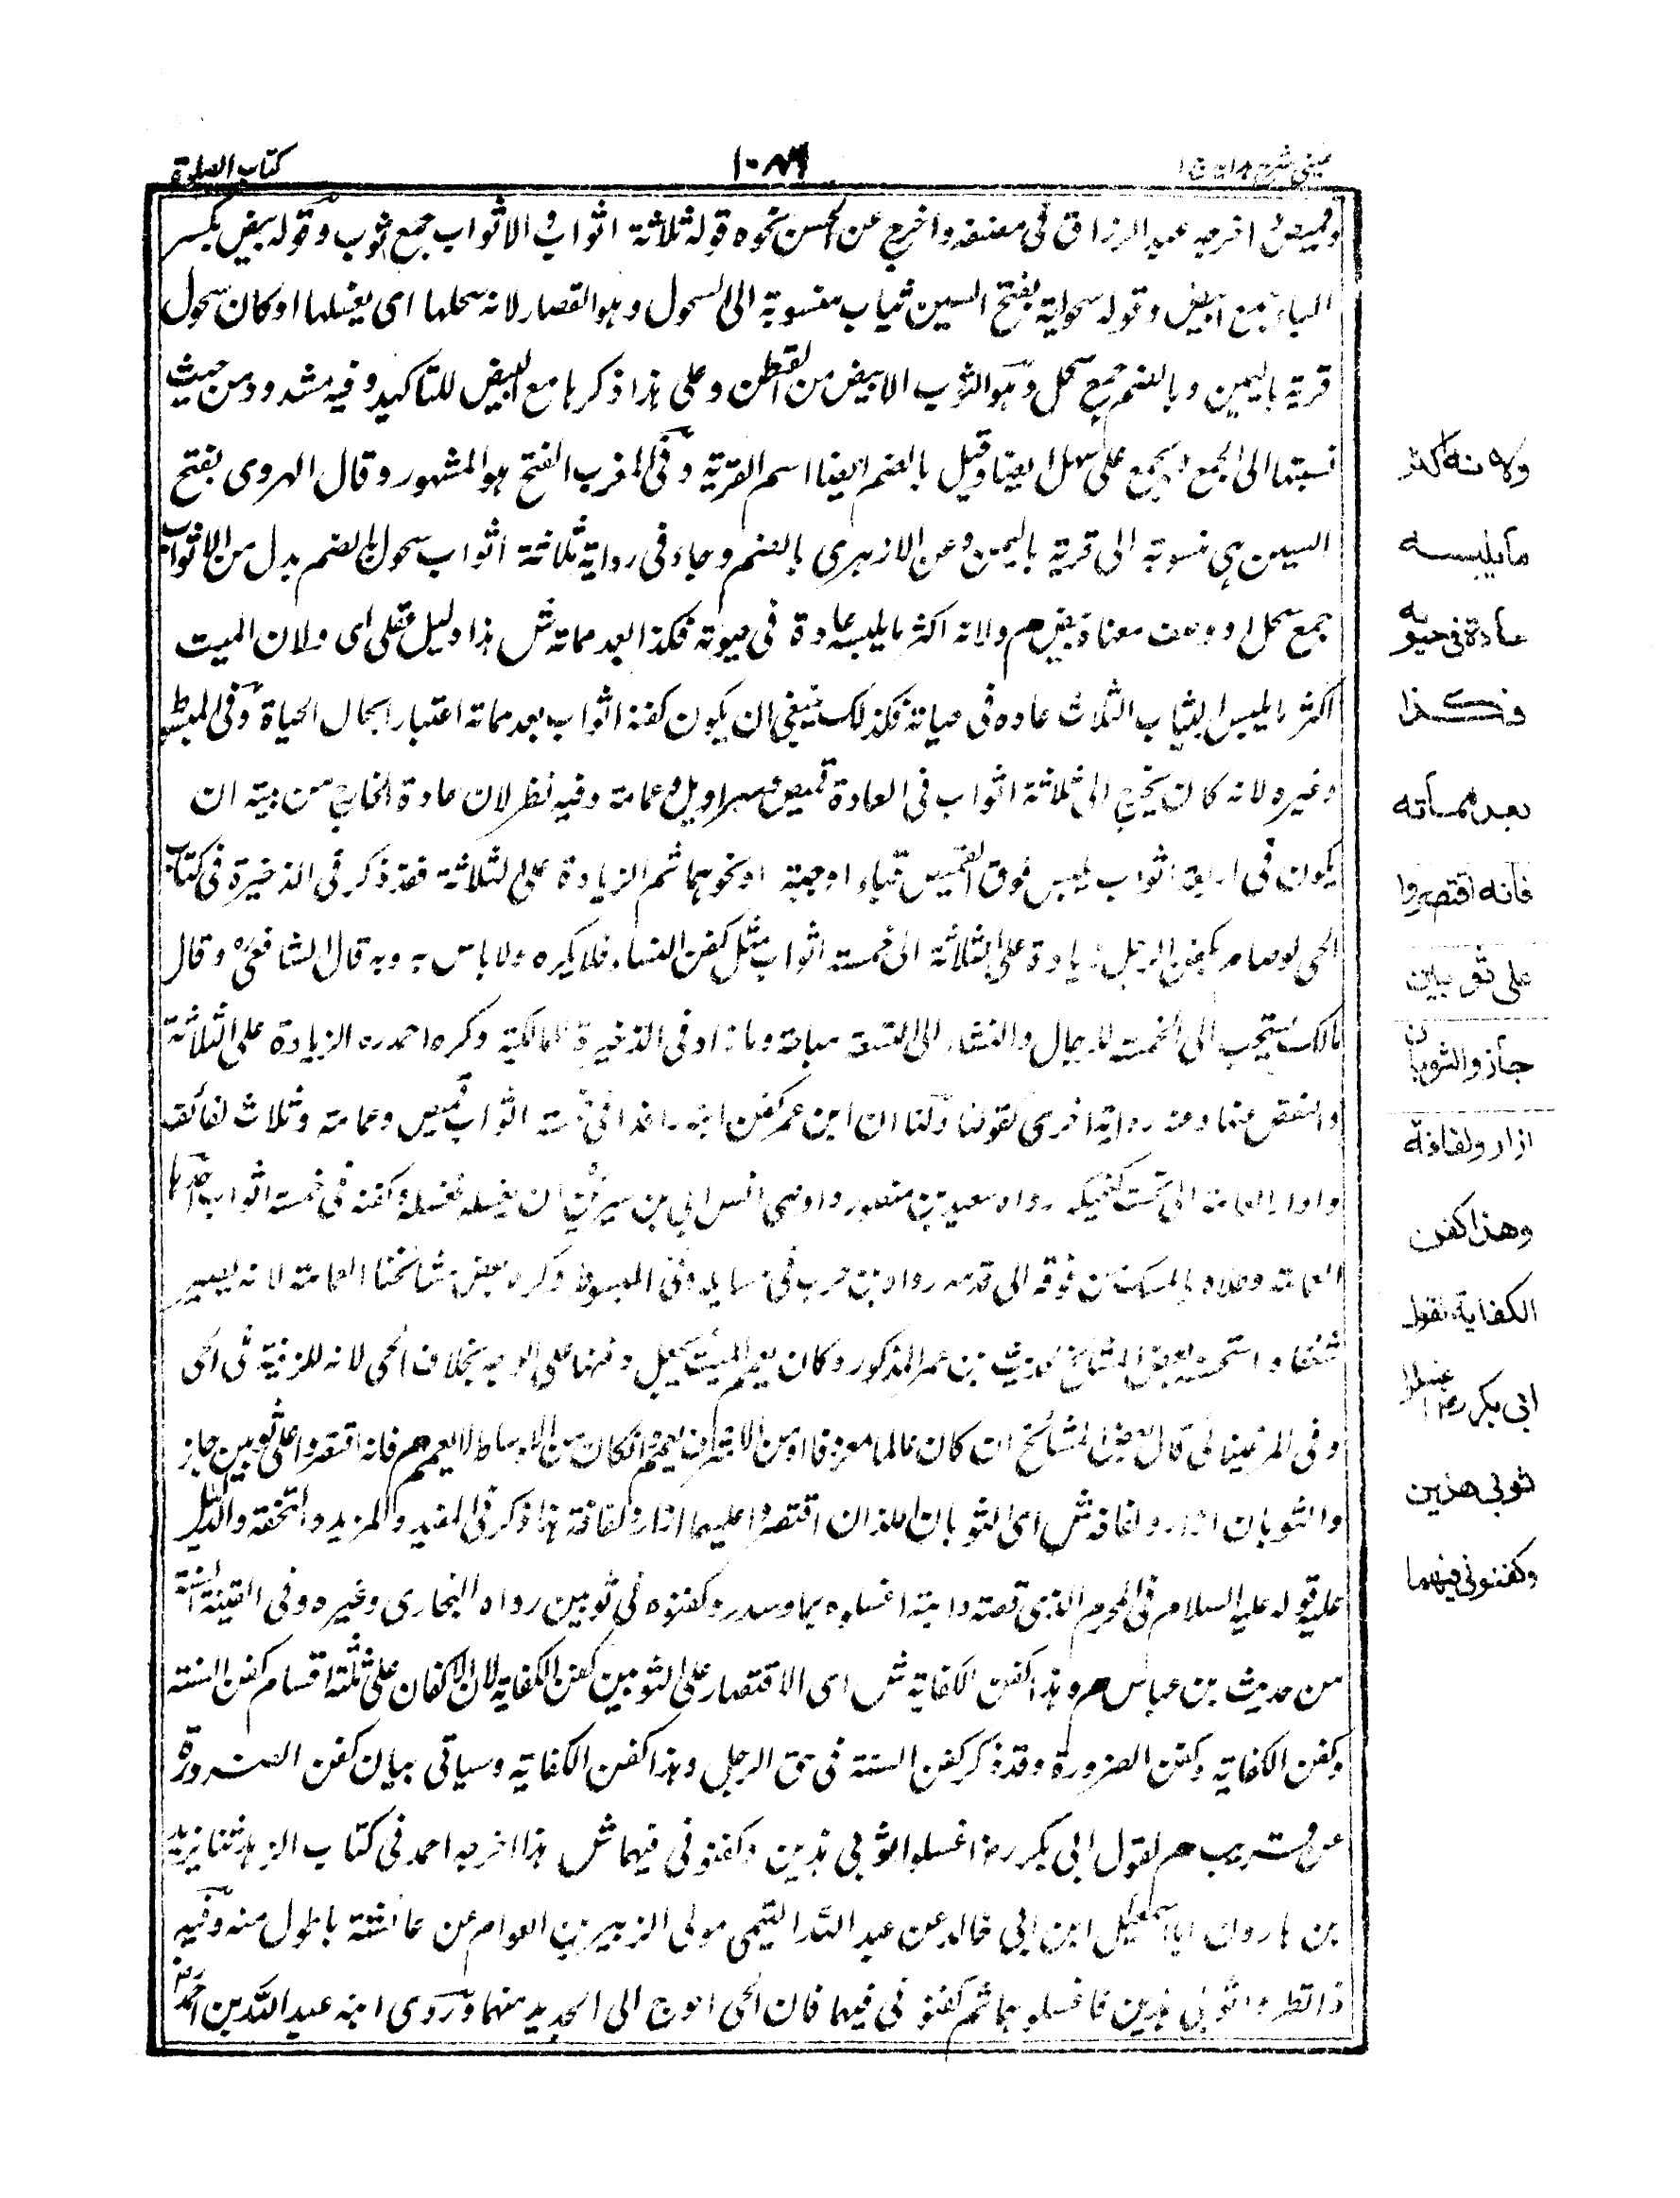 عینی شرح هدایة
۱۰۸۹
كتاب الصلوة
وقميص اخرجه عبد الرزاق فى مصنفه واخرج عن الحسن نحوه قوله ثلاثة اثواب والاثواب جمع ثوب وقوله بيض بكسر
الباء جمع ابيض وقوله سحولية بفتح السين ثياب منسوبة الى السحول وهو القصار لانه يسحلها اى يغسلها او كان سحول
قرية باليمن وبالضم جمع سحل وهو الثوب الابيض من القطن وعلى هذا ذكرها مع البيض للتاكيد وفيه شذوذ من حيث
نسبتها الى الجمع ويجمع على سحل ايضا وقيل بالضم ايضا اسم القرية وفى المغرب الفتح هو المشهور وقال الهروى بفتح
السين هى منسوبة الى قرية باليمن وعن الازهرى بالضم وجاء فى رواية ثلاثة اثواب سحول بالضم بدل من الاثواب
جمع سحل او وصف معناه بيض م ولانه اكثر ما يلبسه عادة فى حيوته فكذا بعد مماته ش هذا دليل عقلى اى ولان الميت
اكثر ما يلبس الثياب الثلاث عاده فى حياته فكذلك ينبغى ان يكون كفنه اثواب بعد مماته اعتبارا بحال الحياة وفى المبسوط
وغيره لانه كان يخرج الى ثلاثة اثواب فى العادة قميص وسراويل وعمامة وفيه نظر لان عادة الخارج من بيته ان
يكون فى اربعة اثواب يلبس فوق القميص قباء او جبة او نحوهما ثم الزيادة على الثلاثة فقد ذكر فى الذخيرة فى كتاب
يكفن الرجل زيادة على الثلاثة الى خمسة اثواب مثل كفن النساء فلا يكره ولا باس به وبه قال الشافعى وقال
مالك يستحب الى الخمسة للرجال والنساء الى السبعة مباحة وما زاد فى الذخيرة المالكية وكره احمد ره الزيادة على الثلاثة
والنقص عنها وعنه رواية اخرى كقولنا ولنا ان ابن عمر كفن ابنه واقدا فى خمسة اثواب قميص وعمامة وثلاث لفائف
وادار العمامة الى تحت حنكه رواه سعيد بن منصور واوصى انس الى بن سيرين ان يغسله فغسله وكفنه فى خمسة اثواب احدها
العمامة وطلاه بالمسك من فوقه الى قدمه رواه بن حرب فى مسايله وفى المبسوط وكره بعض مشائخنا العمامة لانه يصير
شفعا واستحسنه بعض المشائخ لحديث بن عمر المذكور وكان يعمم الميت ويجعل ذنبها على الوجه بخلاف الحى لانه للزينة فى الحى
وفى المرغينانى قال بعض المشائخ ان كان عالما معروفا او من الاشراف يعمم وان كان من الاوساط لا يعمم م فان اقتصروا على ثوبين جاز
والثوبان ازار ولفافة ش اى الثوبان اللذان اقتصروا عليهما ازار ولفافة هذا ذكر فى المفيد والمزيد والتحفة والدليل
عليه قوله عليه السلام فى المحرم الذى قصته دابته اغسلوه بماء وسدر وكفنوه فى ثوبين رواه البخارى وغيره وفى القينة الستة
من حديث بن عباس م وهذا كفن الكفاية ش اى الاقتصار على الثوبين كفن الكفاية لان الاكفان على ثلثة اقسام كفن السنة
وكفن الكفاية وكفن الضرورة وقد ذكر كفن السنة فى حق الرجل وهذا كفن الكفاية وسياتى بيان كفن الضرورة
عن قريب م لقول ابى بكر رض اغسلوا ثوبى هذين وكفنونى فيهما ش هذا اخرجه احمد فى كتاب الزهد ثنا يزيد
بن هارون انا اسمعيل ابن ابى خالد عن عبد الله التيمى مولى الزبير بن العوام عن عائشة باطول منه وفيه
فانظروا ثوبى هذين فاغسلوهما ثم كفنونى فيهما فان الحى احوج الى الجديد منهما وروى ابنه عبد الله بن احمد رض
ولانه اكثر
ما يلبسه
عادة فى حيوته
فكذا
بعد مماته
فانه اقتصروا
على ثوبين
جاز والثوبان
ازار ولفافة
وهذا كفن
الكفاية لقول
ابى بكر رض اغسلوا
ثوبى هذين
وكفنونى فيهما